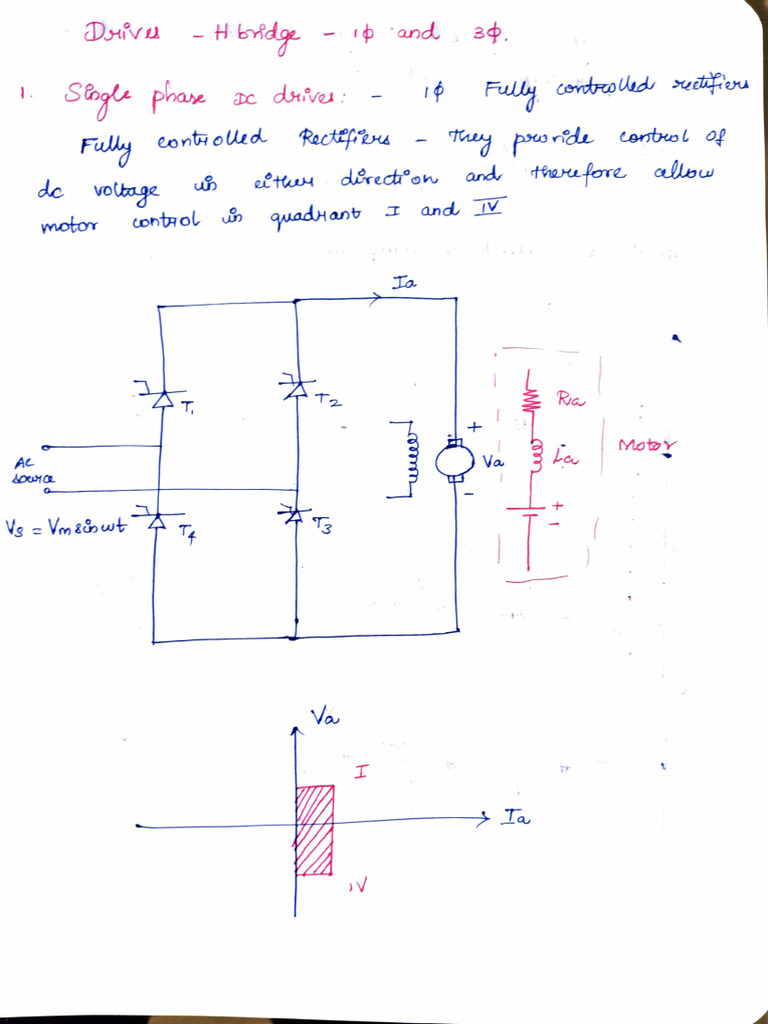 Drives - H bridge - 1ϕ and 3ϕ.
1. Single phase DC drives: - 1ϕ Fully controlled rectifiers
Fully controlled Rectifiers - they provide control of
dc voltage in either direction and therefore allow
motor control in quadrant I and IV
Ia
T1
T2
Ra
+
Motor
AC
source
Va
La
-
+
-
Vs = Vm sin wt
T4
T3
Va
I
Ia
IV